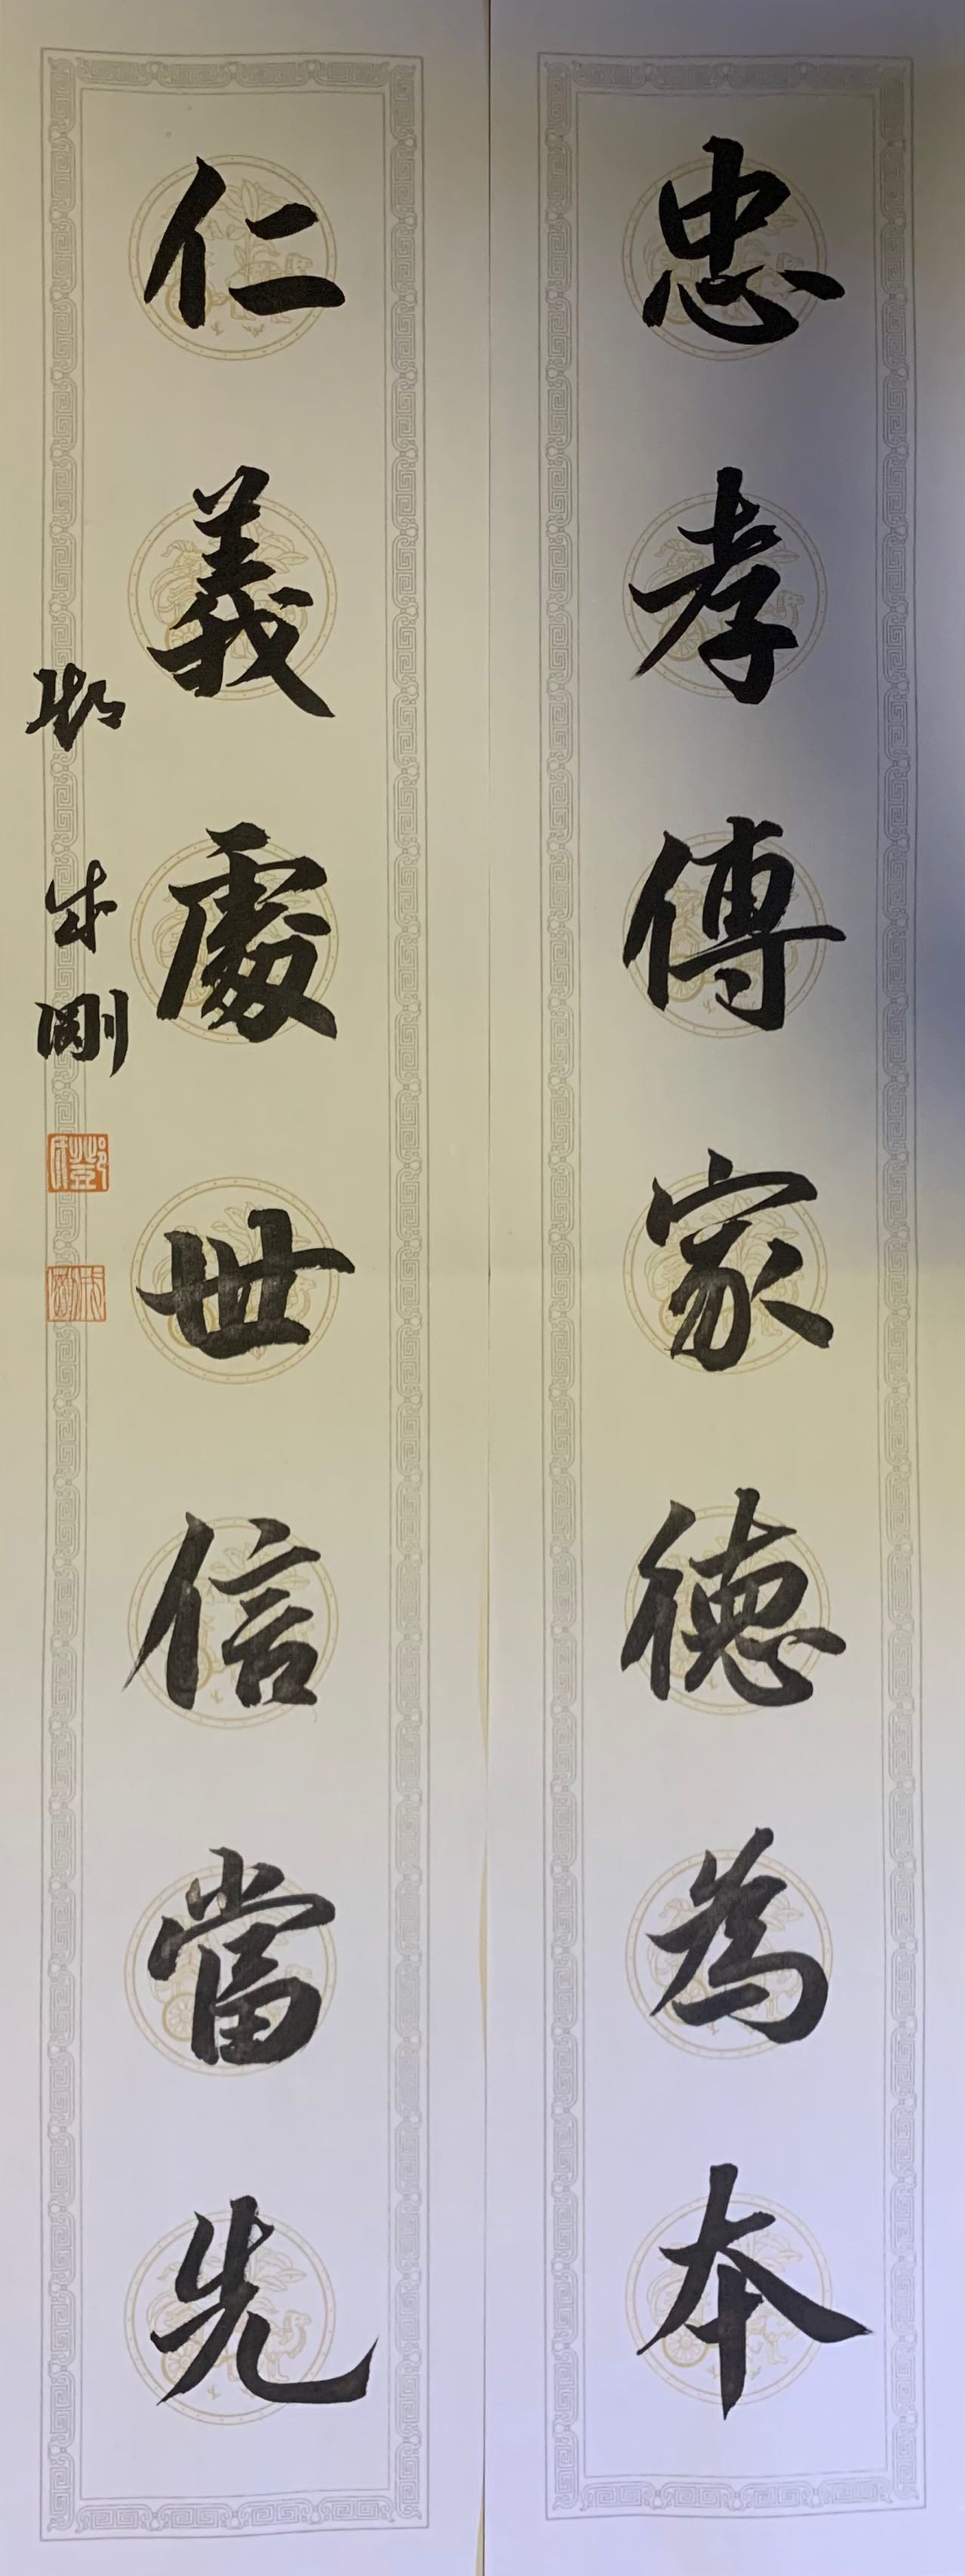 忠孝傳家德為本
仁義處世信當先
鄧成剛